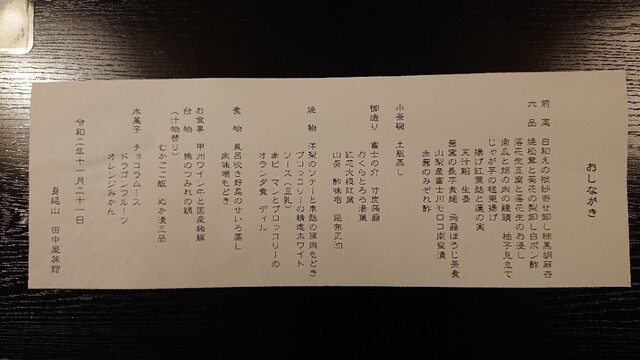 おしながき
前菜 日和えの微妙寄せ卸し柿黒胡麻杏
六品 焼松茸と菊花の梨卸し白ポン酢
落花生豆腐と落花生のお浸し
南瓜と畑の肉の饅頭 柚子見立て
じゃが芋の毬栗揚げ
揚げ紅葉麩と蓮の実
天汁餡 生姜
の長芋素麺 ほうじ茶煮
山梨産富士川モロコ南蛮漬
赤蕪のみぞれ酢
小茶碗 土瓶蒸し
御造り 富士の介
おくらとろろ湯葉
紅芯大根紅葉
山葵 酢味噌 昆布正油
焼物 洋梨のソテーと車麩の豚肉もどき
ブロッコリーの精進ホワイト
ソース(豆乳)
赤ピーマンとブロッコリーの
オランダ煮 ディル
煮物 風呂吹き野菜のせいろ蒸し
肉味噌もどき
お食事 甲州ワイン牛と国産雑豚
台物 鴨のつみれの鍋
(汁物替り)
むかごご飯 ぬか漬三品
水菓子 チョコラムース
ドラゴンフルーツ
オレンジみかん
令和二年十一月二十一日
身延山 田中屋旅館